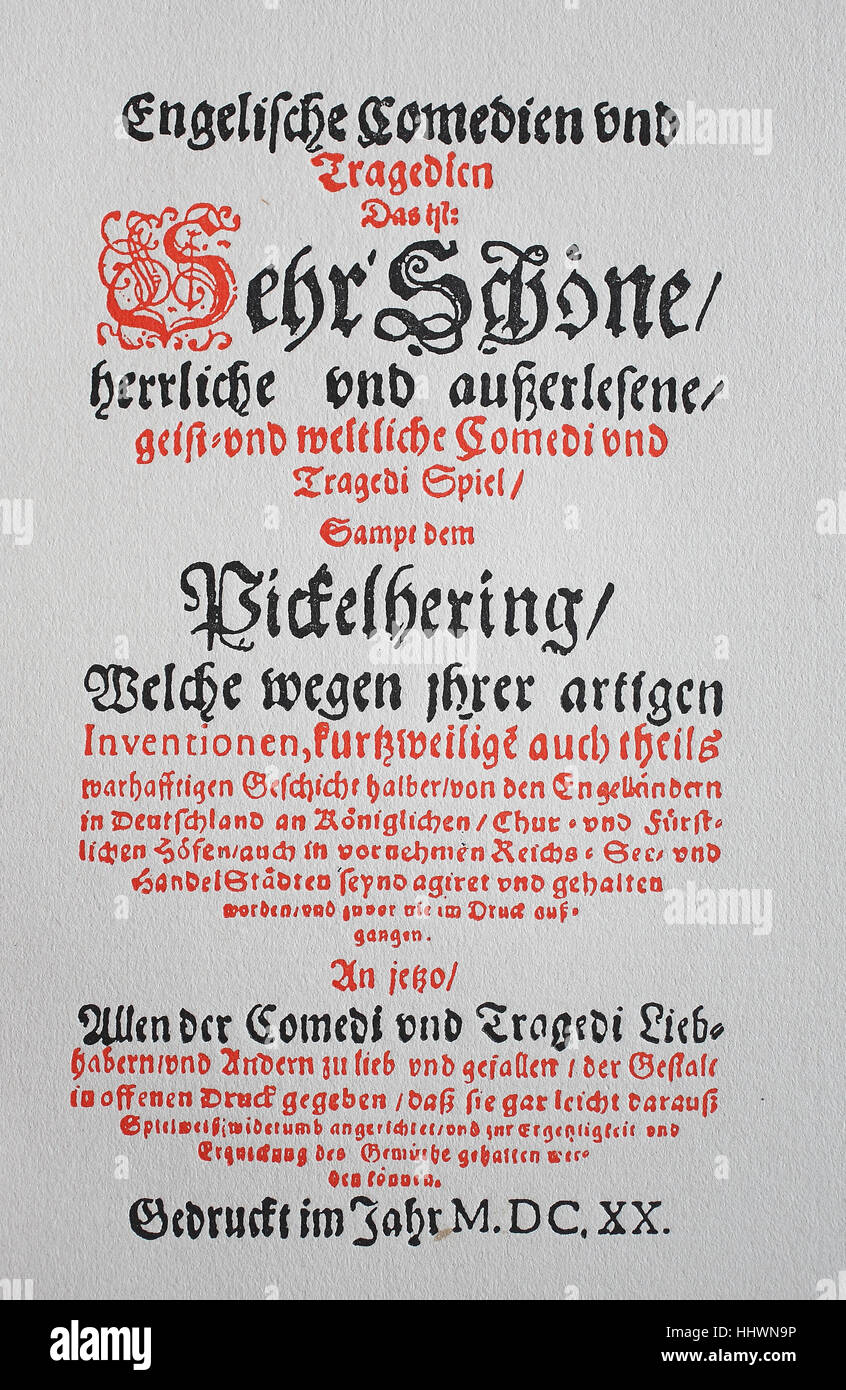 Engelische Comedien vnd
Tragedien
Das ist:
Sehr Schöne/
herrliche vnd außerlesene/
geist-vnd weltliche Comedi vnd
Tragedi Spiel/
Sampt dem
Pickelhering/
Welche wegen jhrer artigen
Inventionen, kurtzweiligē auch theils
warhafftigen Geschicht halber/von den Engelländern
in Deutschland an Königlichen/Chur-vnd Fürst-
lichen Höfen/auch in vornehmen Reichs-See-vnd
HandelStädten seynd agiret vnd gehalten
worden/vnd zuvor nie im Druck auß-
gangen.
An jetzo/
Allen der Comedi vnd Tragedi Lieb-
habern/vnd Andern zu lieb vnd gefallen/der Gestalt
in offenen Druck gegeben/daß sie gar leicht darauß
Spielweiß widerumb angerichtet/vnd zur Ergetzligkeit vnd
Erquickung des Gemüths gehalten wer-
den können.
Gedruckt im Jahr M. DC. XX.
alamy
Image ID: HHWN9P
www.alamy.com